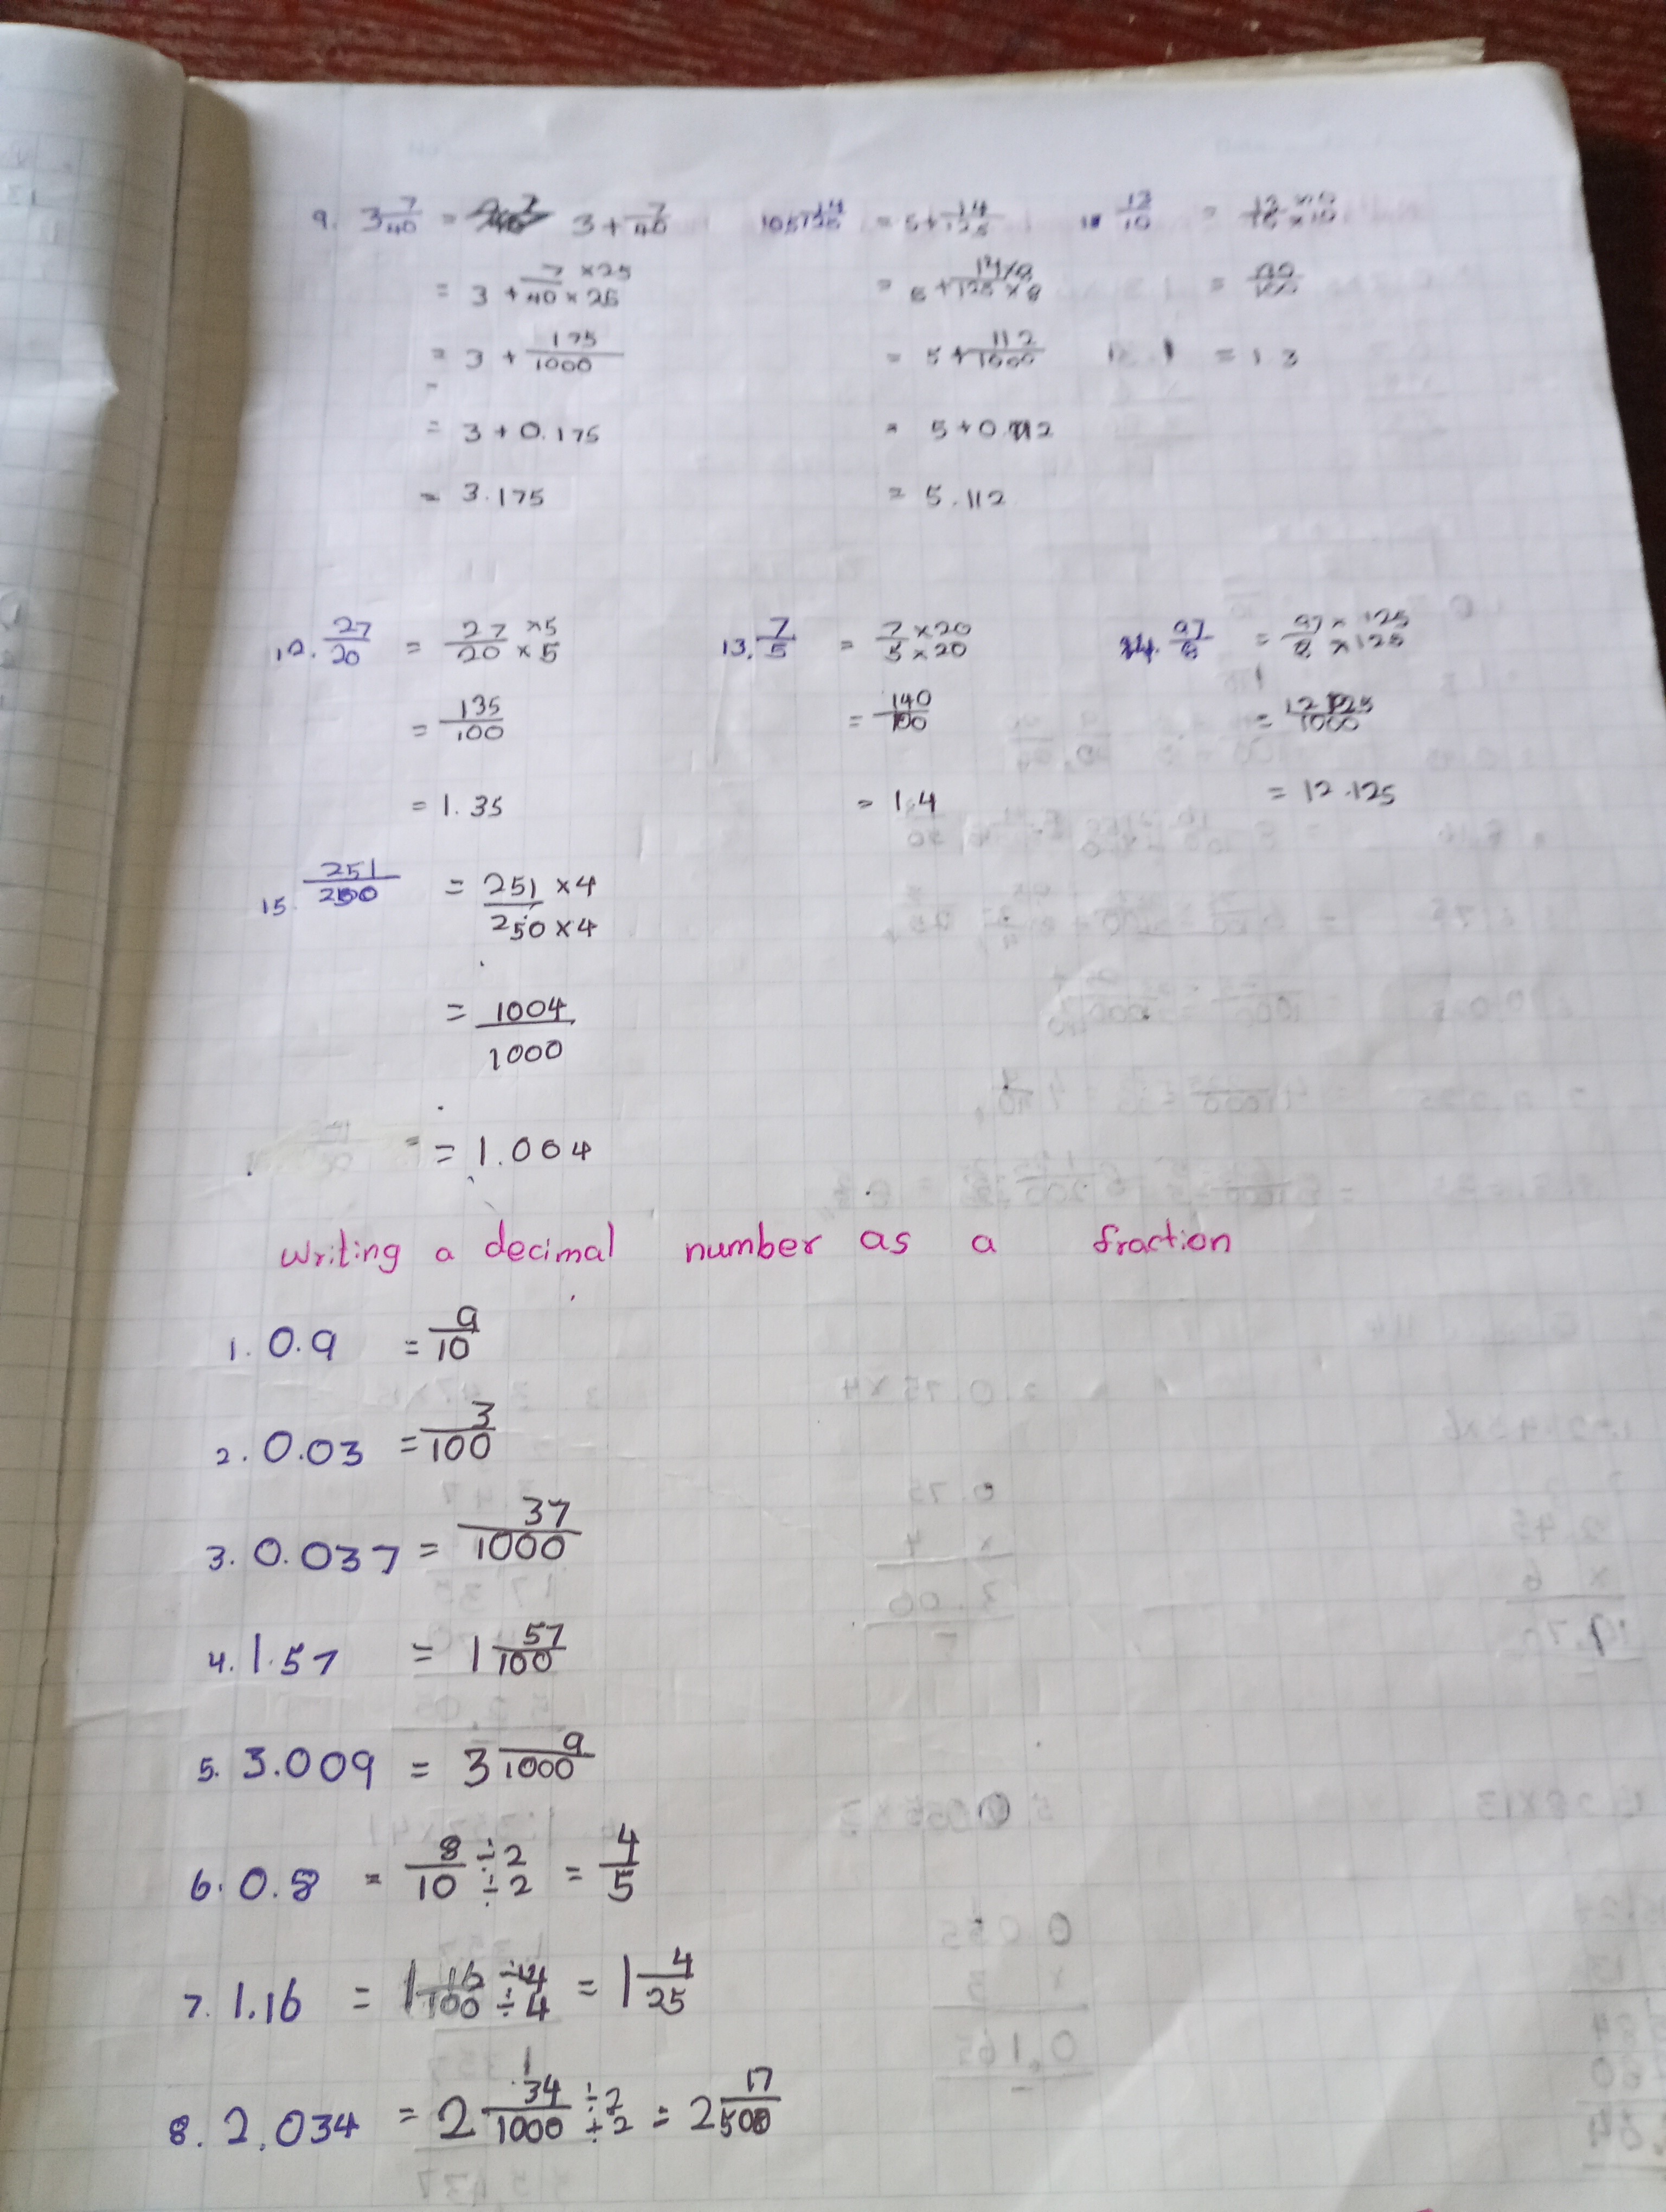 9. 3 7/40 = 3 + 7/40
= 3 + 7 × 25 / 40 × 25
= 3 + 175/1000
= 3 + 0.175
= 3.175
10. 5 14/125 = 5 + 14/125
= 5 + 14 × 8 / 125 × 8
= 5 + 112/1000
= 5 + 0.112
= 5.112
13/10 = 13 × 10 / 10 × 10
= 130/100
= 1.3
12. 27/20 = 27 × 5 / 20 × 5
= 135/100
= 1.35
13. 7/5 = 7 × 20 / 5 × 20
= 140/100
= 1.4
14. 97/8 = 97 × 125 / 8 × 125
= 12125/1000
= 12.125
15. 251/250 = 251 × 4 / 250 × 4
= 1004/1000
= 1.004
writing a decimal number as a fraction
1. 0.9 = 9/10
2. 0.03 = 3/100
3. 0.037 = 37/1000
4. 1.57 = 1 57/100
5. 3.009 = 3 9/1000
6. 0.8 = 8 ÷ 2 / 10 ÷ 2 = 4/5
7. 1.16 = 1 16 ÷ 4 / 100 ÷ 4 = 1 4/25
8. 2.034 = 2 34 ÷ 2 / 1000 ÷ 2 = 2 17/500